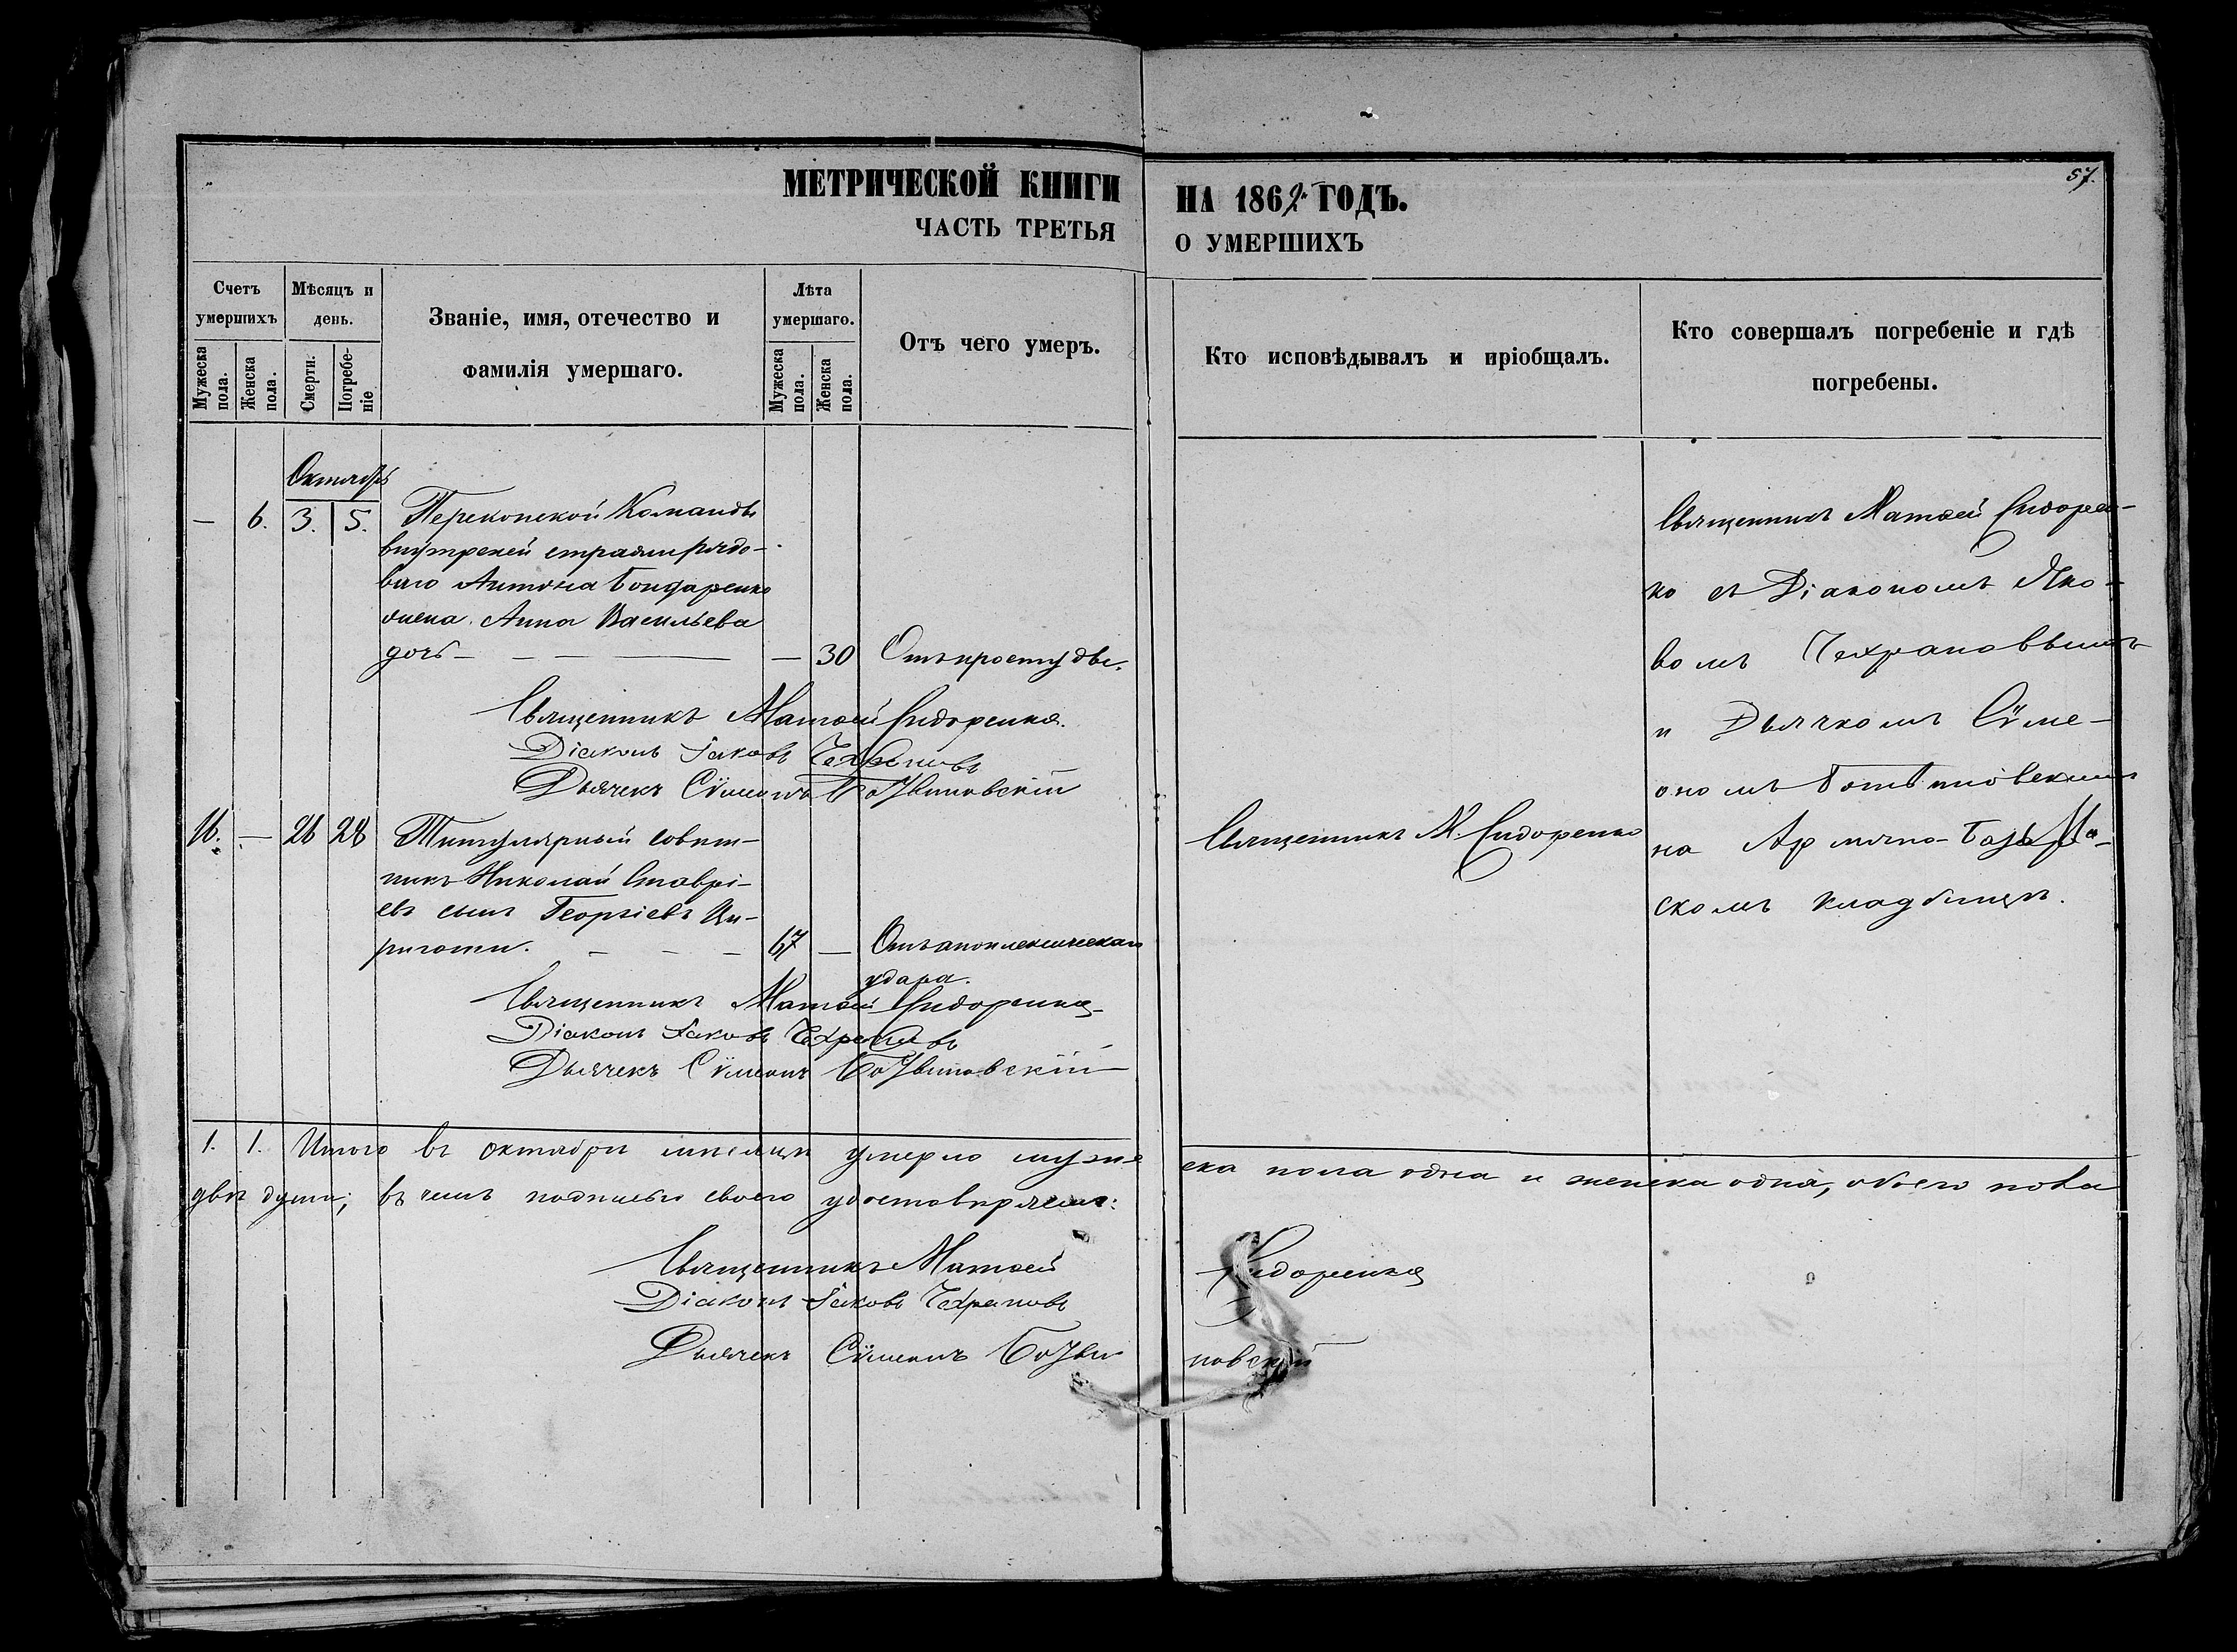 МЕТРИЧЕСКОЙ КНИГИ
ЧАСТЬ ТРЕТЬЯ
НА 1862 ГОДЪ.
О УМЕРШИХЪ
57.
Счетъ умершихъ
Мужеска пола.
Женска пола.
Мѣсяцъ и день.
Смерти.
Погребеніе
Званіе, имя, отечество и
фамилія умершаго.
Лѣта умершаго.
Мужеска пола.
Женска пола.
Отъ чего умеръ.
Кто исповѣдывалъ и пріобщалъ.
Кто совершалъ погребеніе и гдѣ
погребены.
Октябрь
— 6. 3. 5. Перекопской Команды
внутреней стражи рядо-
ваго Антона Бондаренко
жена Анна Васильева
дочь — — 30 Отъ простуды.
Священникъ Матѳей Сидоренко.
Діаконъ Іаковъ Чехрановъ
Дьячекъ Сѵмеонъ
16. — 26 28 Титулярный совѣт-
никъ Николай Ставрі-
евъ сынъ Георгіевъ Ци-
риготи. 67 — Отъ апоплексическаго
удара.
Священникъ Матѳей Сидоренко
Діаконъ Іаковъ Чехрановъ
Дьячекъ Сѵмеонъ
Священникъ М. Сидоренко
Священникъ Матѳей Сидорен-
ко съ Діакономъ Яко-
вомъ Чехрановымъ
и Дьячкомъ Сѵме-
ономъ
на Армяно-Базар-
скомъ кладбищѣ.
1. 1. Итого въ октябрѣ мѣсяцѣ умерло муже
ска пола одна и женска одна, обоего пола
двѣ души; въ чемъ подписью своею удостовѣряемъ:
Священникъ Матѳей Сидоренко
Діаконъ Іаковъ Чехрановъ
Дьячекъ Сѵмеонъ